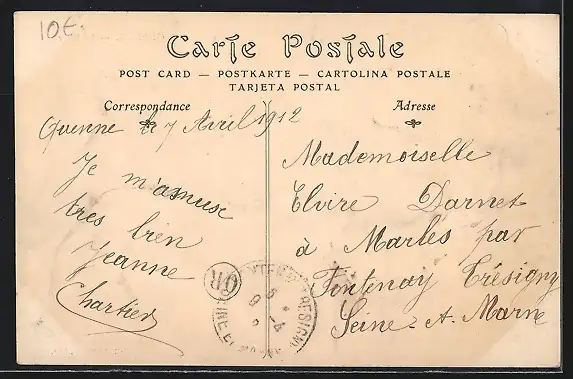 10 E.
Carte Postale
POST CARD — POSTKARTE — CARTOLINA POSTALE
TARJETA POSTAL
Correspondance
Adresse
le 7 Avril 1912
Je m'amuse
très bien
Jeanne
Chartier
Mademoiselle
Elvire Darnet
à Marles par
Fontenay Trésigny
Seine-et-Marne
OR